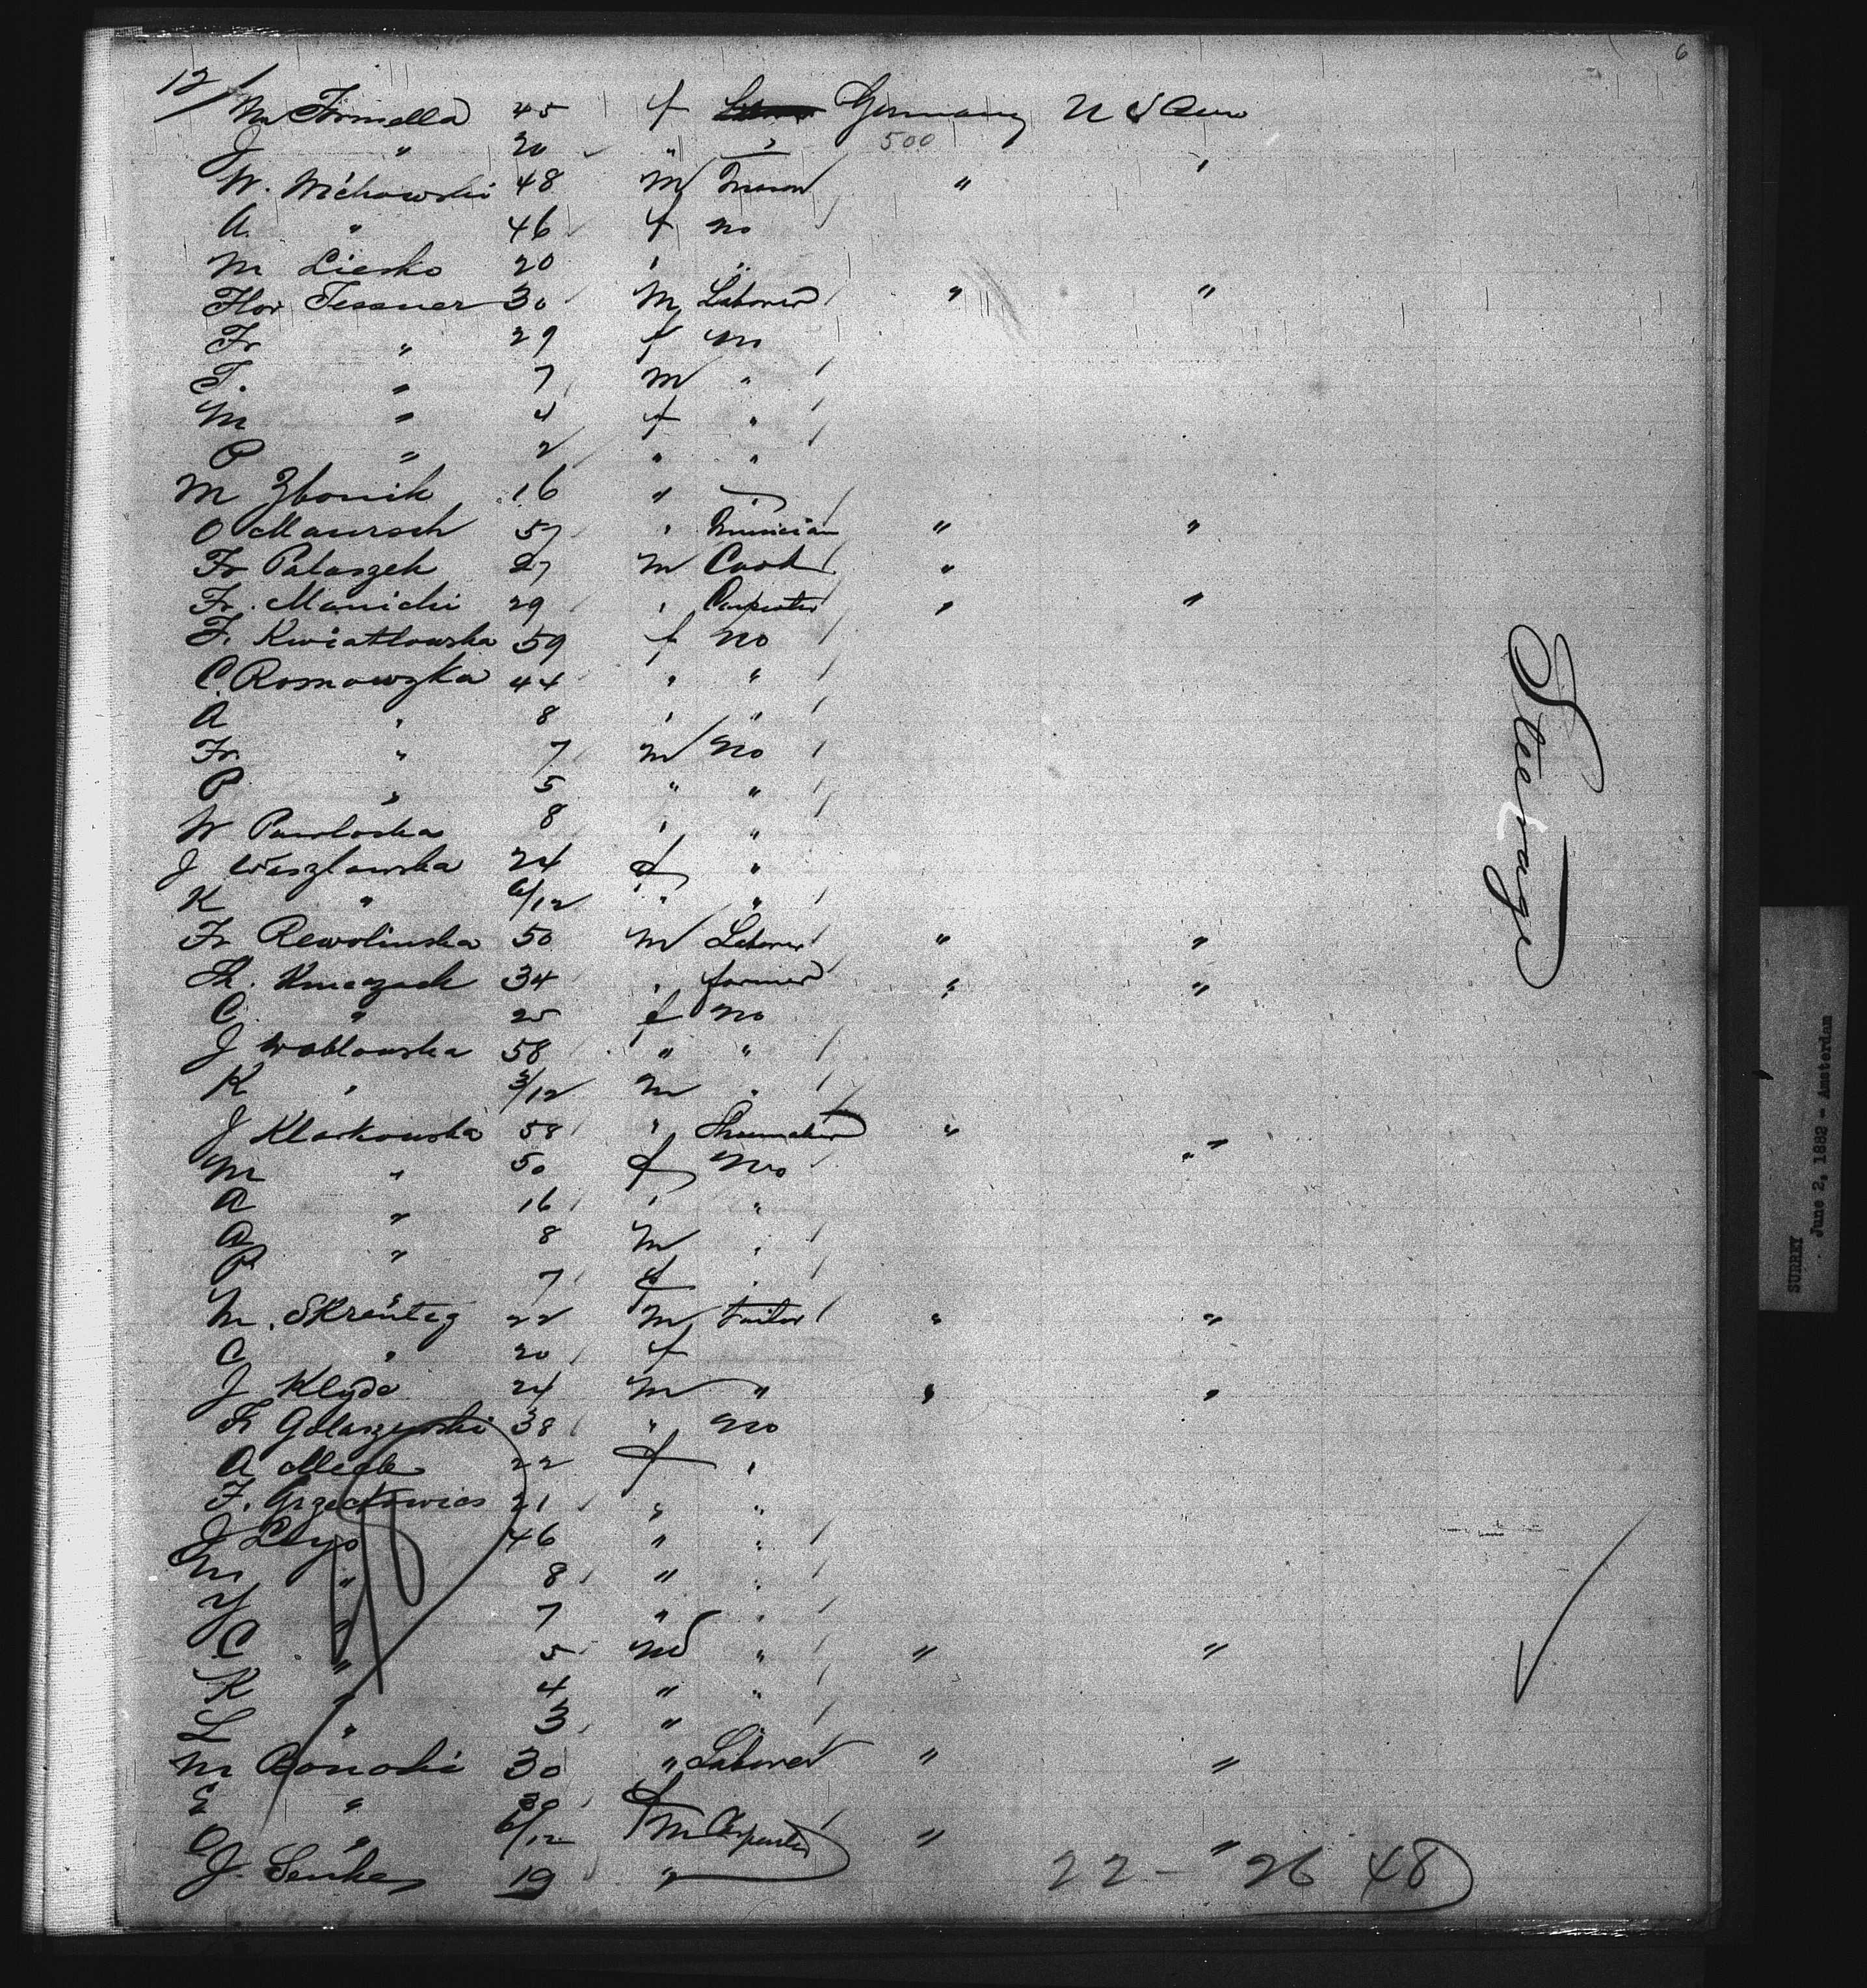 6
12/
M Formella 45 f Germany U S Am
J " 20 " " 500
W. Michowski 48 M Mason " "
A. " 46 f no
M Liesko 20 " "
Flor Tessner 30 M Laborer " "
Fr " 29 f no
T. " 7 M "
M " 4 f "
P " 2 " "
M Zbonik 16 " "
O Maursch 57 " Musician " "
Fr Palaszek 27 M Cook "
Fr. Manicki 29 " Carpenter " "
F. Kwiatkowska 59 f no
C. Romowzka 44 " "
A " 8 " "
Fr " 7 M no
P " 5 " "
W Pawloska 8 " "
J Waszlawska 24 f "
K " 6/12 " "
Fr Rewolinska 50 M Laborer " "
Th. Kmeczack 34 " farmer " "
C. " 25 f no
J Woblowska 58 " "
K " 3/12 M "
J Klaskowska 58 " Shoemaker " "
M " 50 f no
A " 16 " "
A " 8 M "
P " 7 f "
M. Skrentzg 22 M tailor " "
C " 20 f
J Klyda 24 M " " "
Fr Golaszewski 38 " no
A Meck 22 f "
F. Grzeckowics 21 " "
J Leys 46 " "
M " 8 " "
Y " 7 " "
C " 5 M " " "
K " 4 " "
L " 3 " "
M Bonoski 30 " Laborer " "
E " 30 f
O " 6/12 M Carpenter " "
J. Senke 19 "
22 - 26 48
Steerage
SURREY
June 2, 1882 - Amsterdam